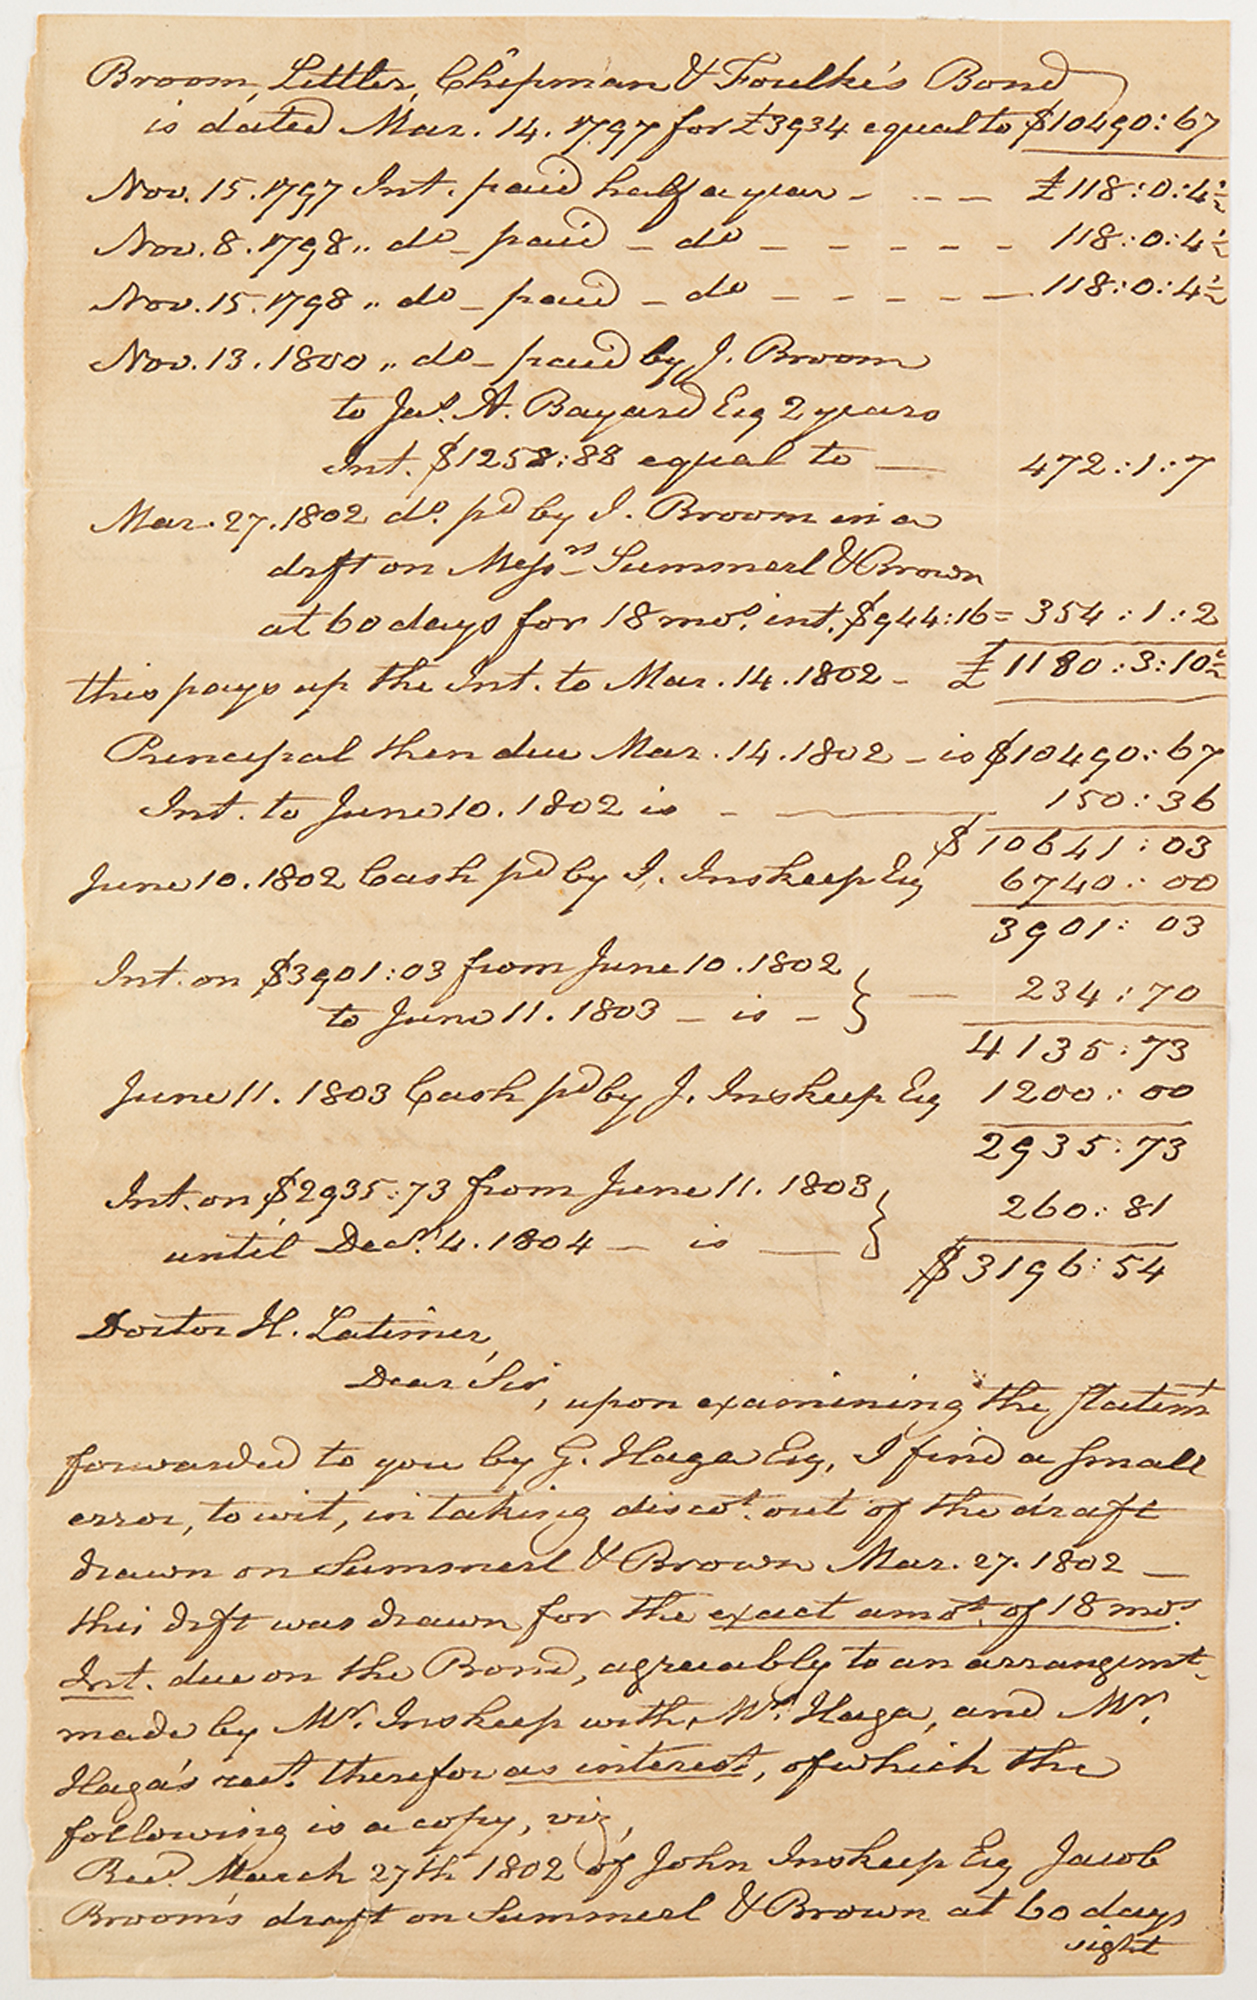 Broom, Littler, Chipman & Foulke's Bond
is dated Mar. 14. 1797 for £3934 equal to $10490:67
Nov. 15. 1797 Int. paid half a year - - - - £118:0:4½
Nov. 8. 1798 „ do - paid - do - - - - - 118:0:4½
Nov. 15. 1798 „ do - paid - do - - - - - 118:0:4½
Nov. 13. 1800 „ do - paid by J. Broom
to Jas. A. Bayard Esq 2 years
Int. $1258:88 equal to — 472:1:7
Mar. 27. 1802 do. pd by J. Broom in a
drft on Messrs Summerl & Brown
at 60 days for 18 mos. int. $944:16 = 354:1:2
this pays up the Int. to Mar. 14. 1802 - £1180:3:10½
Principal then due Mar. 14. 1802 - is $10490:67
Int. to June 10. 1802 is - — 150:36
$10641:03
June 10. 1802 Cash pd by J. Inskeep Esq 6740:00
3901:03
Int. on $3901:03 from June 10. 1802
to June 11. 1803 - is - } — 234:70
4135:73
June 11. 1803 Cash pd by J. Inskeep Esq 1200:00
2935:73
Int. on $2935:73 from June 11. 1803
until Decr. 4. 1804 — is — } 260:81
$3196:54
Doctor H. Latimer,
Dear Sir, upon examining the statemt
forwarded to you by G. Haga Esq, I find a small
error, to wit, in taking discot. out of the draft
drawn on Summerl & Brown Mar. 27. 1802 —
this drft was drawn for the exact amot. of 18 mos.
Int. due on the Bond, agreeably to an arrangemt.
made by Mr. Inskeep with Mr. Haga, and Mr.
Haga's rect. therefor as interest, of which the
following is a copy, viz,
Recd. March 27th 1802 of John Inskeep Esq Jacob
Broom's draft on Summerl & Brown at 60 days
sight